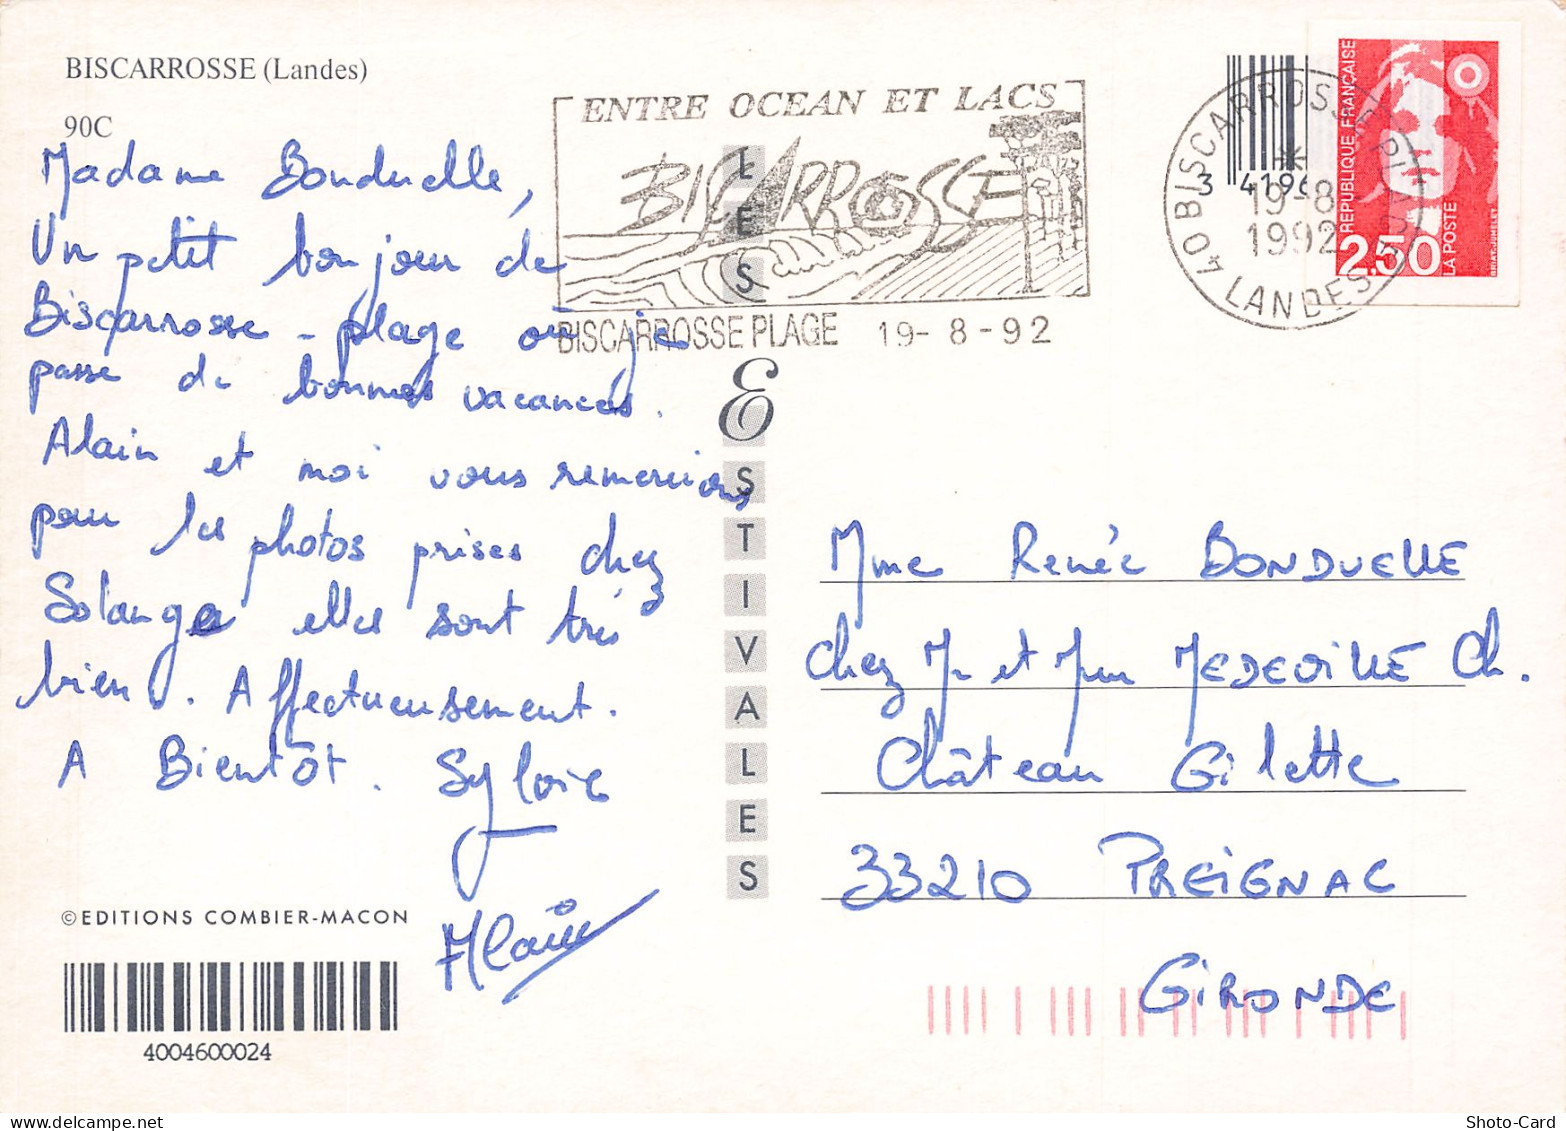 BISCARROSSE (Landes)
90C
Madame Bonduelle,
Un petit bonjour de
Biscarrosse - plage où je
passe de bonnes vacances.
Alain et moi vous remercions
pour les photos prises chez
Solange elles sont très
bien. Affectueusement.
A Bientôt. Sylvie
Alain
©EDITIONS COMBIER-MACON
4004600024
LES
ESTIVALES
ENTRE OCEAN ET LACS
BISCARROSSE
BISCARROSSE PLAGE 19-8-92
3 4196
40 BISCARROSSE PLAGE
19-8
1992
LANDES
REPUBLIQUE FRANÇAISE
2,50
LA POSTE
BRIAT-JUMELET
Mme Renée BONDUELLE
chez Mr et Mme MEDEVILLE Ch.
Château Gilette
33210 PREIGNAC
GIRONDE
Shoto-Card